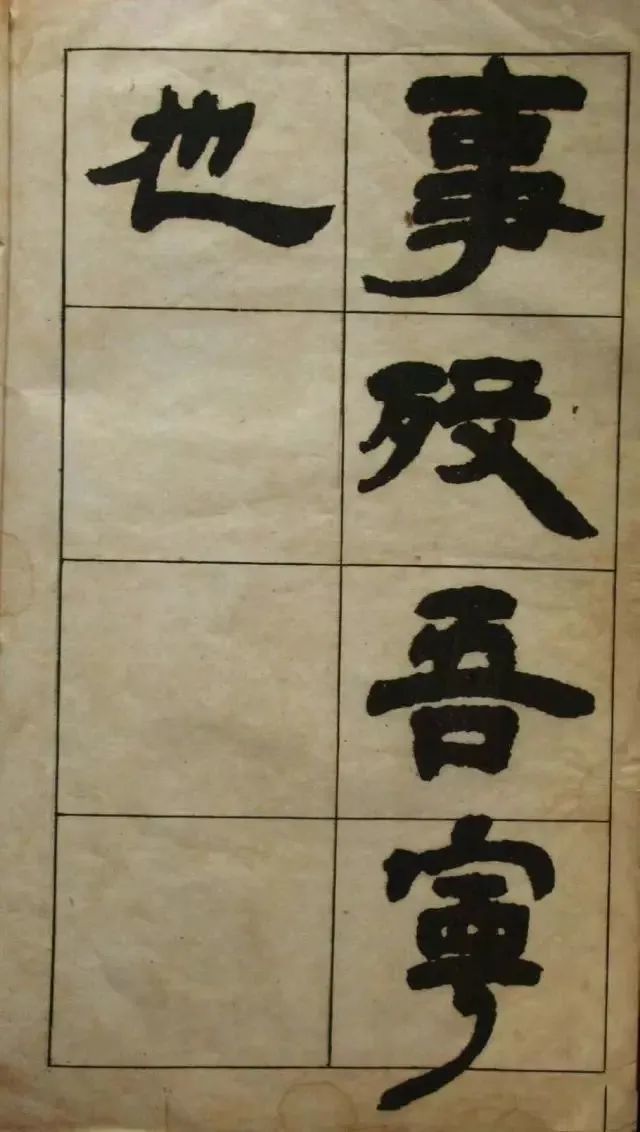 事殁吾寧
也